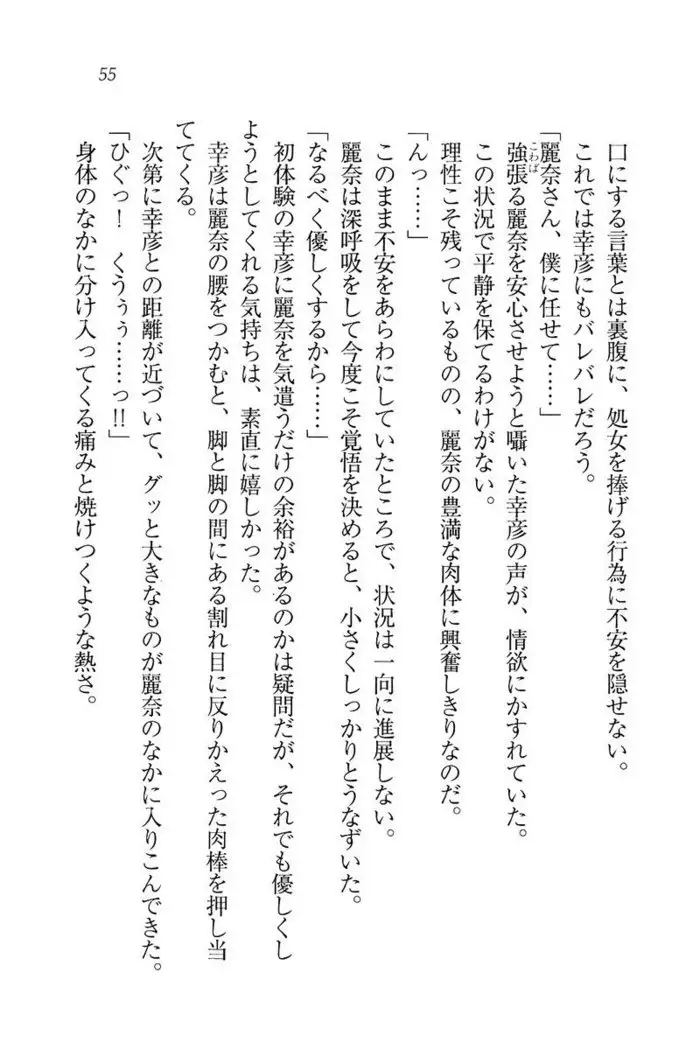 55
口にする言葉とは裏腹に、処女を捧げる行為に不安を隠せない。
これでは幸彦にもバレバレだろう。
「麗奈さん、僕に任せて……」
強張る麗奈を安心させようと囁いた幸彦の声が、情欲にかすれていた。
こわば
この状況で平静を保てるわけがない。
理性こそ残っているものの、麗奈の豊満な肉体に興奮しきりなのだ。
「んっ……」
このまま不安をあらわにしていたところで、状況は一向に進展しない。
麗奈は深呼吸をして今度こそ覚悟を決めると、小さくしっかりとうなずいた。
「なるべく優しくするから……」
初体験の幸彦に麗奈を気遣うだけの余裕があるのかは疑問だが、それでも優しくし
ようとしてくれる気持ちは、素直に嬉しかった。
幸彦は麗奈の腰をつかむと、脚と脚の間にある割れ目に反りかえった肉棒を押し当
ててくる。
次第に幸彦との距離が近づいて、グッと大きなものが麗奈のなかに入りこんできた。
「ひぐっ！　くうぅぅ……っ!!」
身体のなかに分け入ってくる痛みと焼けつくような熱さ。